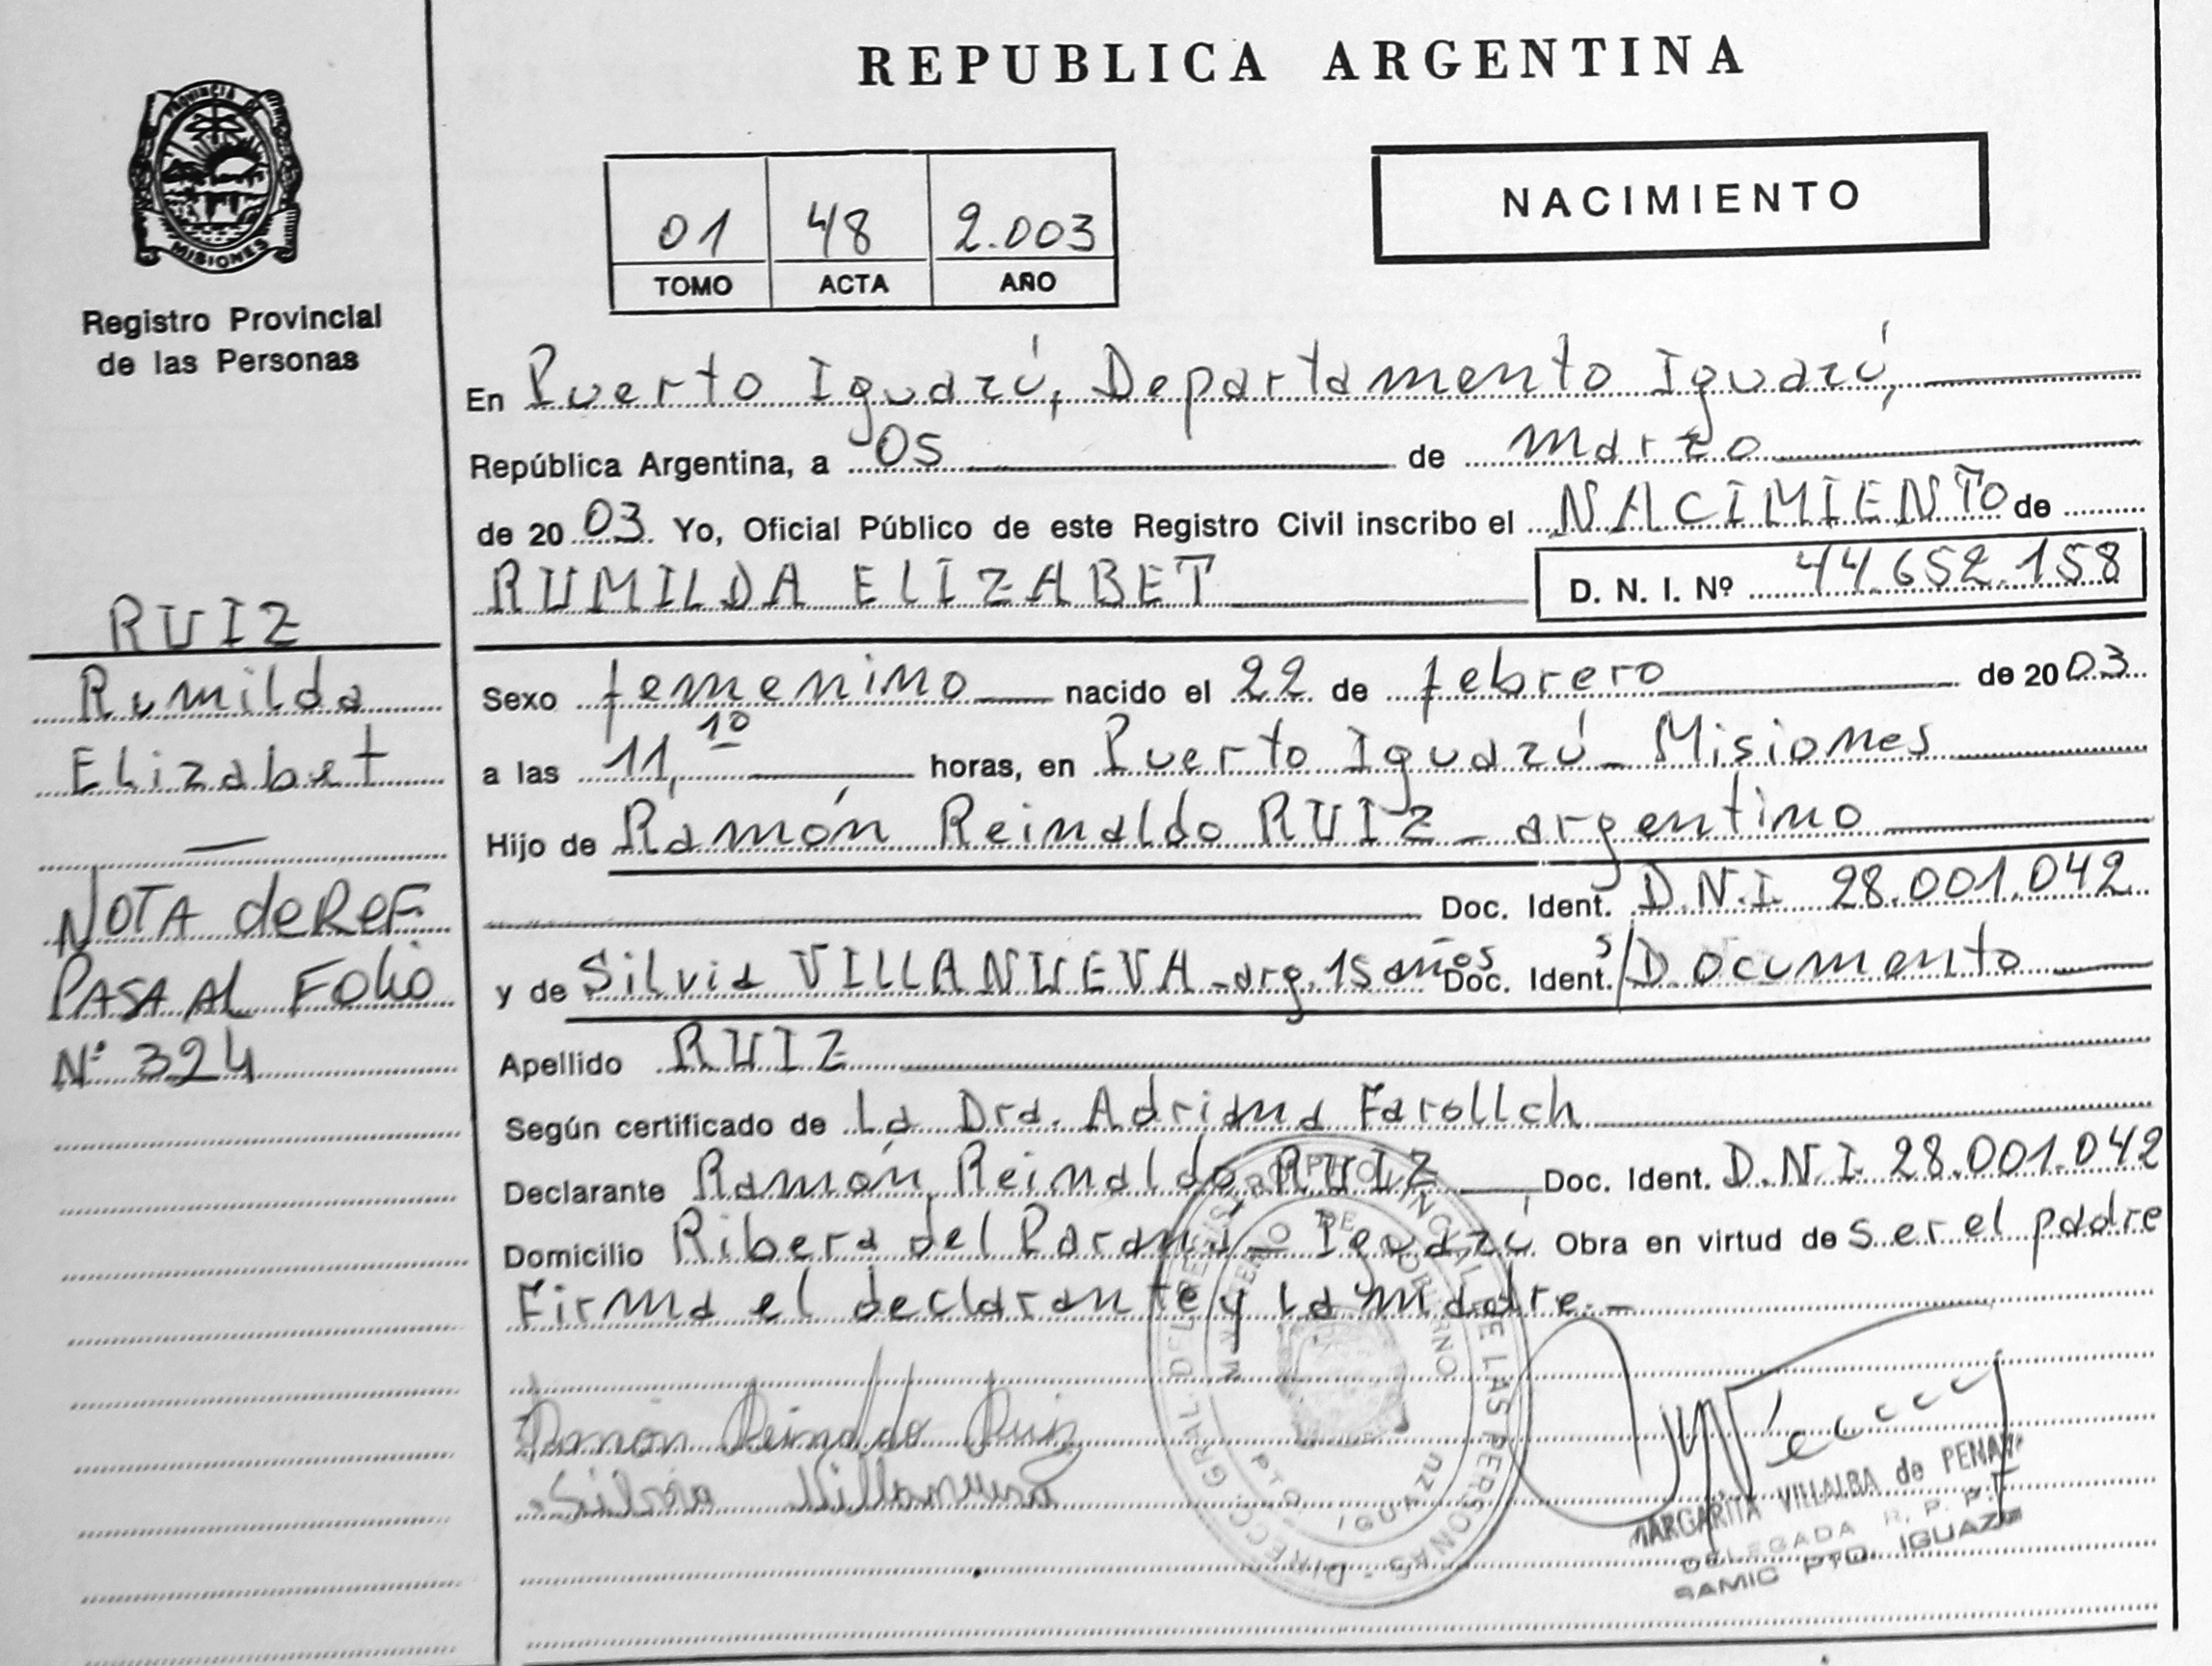 REPUBLICA ARGENTINA
PROVINCIA DE
MISIONES
Registro Provincial
de las Personas
01 48 2.003
TOMO ACTA AÑO
NACIMIENTO
En Puerto Iguazú, Departamento Iguazú,
República Argentina, a 05 de marzo
de 2003 Yo, Oficial Público de este Registro Civil inscribo el NACIMIENTO de
RUMILDA ELIZABET D. N. I. Nº 44.652.158
Sexo femenino nacido el 22 de febrero de 2003
a las 11,10 horas, en Puerto Iguazú - Misiones
Hijo de Ramón Reinaldo RUIZ - argentino
Doc. Ident. D.N.I. 28.001.042
y de Silvia VILLANUEVA - arg. 15 años Doc. Ident. s/Documento
Apellido RUIZ
Según certificado de La Dra. Adriana Farollch
Declarante Ramón Reinaldo RUIZ Doc. Ident. D.N.I. 28.001.042
Domicilio Ribera del Paraná - Iguazú Obra en virtud de ser el padre
Firma el declarante y la madre.-
Ramón Reinaldo Ruiz
Silvia Villanueva
RUIZ
Rumilda
Elizabet
NOTA de REF.
PASA AL FOLIO
Nº 324
DIRECC. GRAL. DEL REGISTRO PROVINCIAL DE LAS PERSONAS
MINISTERIO DE GOBIERNO
PTO. IGUAZU
MARGARITA VILLALBA de PENAY
DELEGADA R. P. P.
SAMIC PTO. IGUAZU